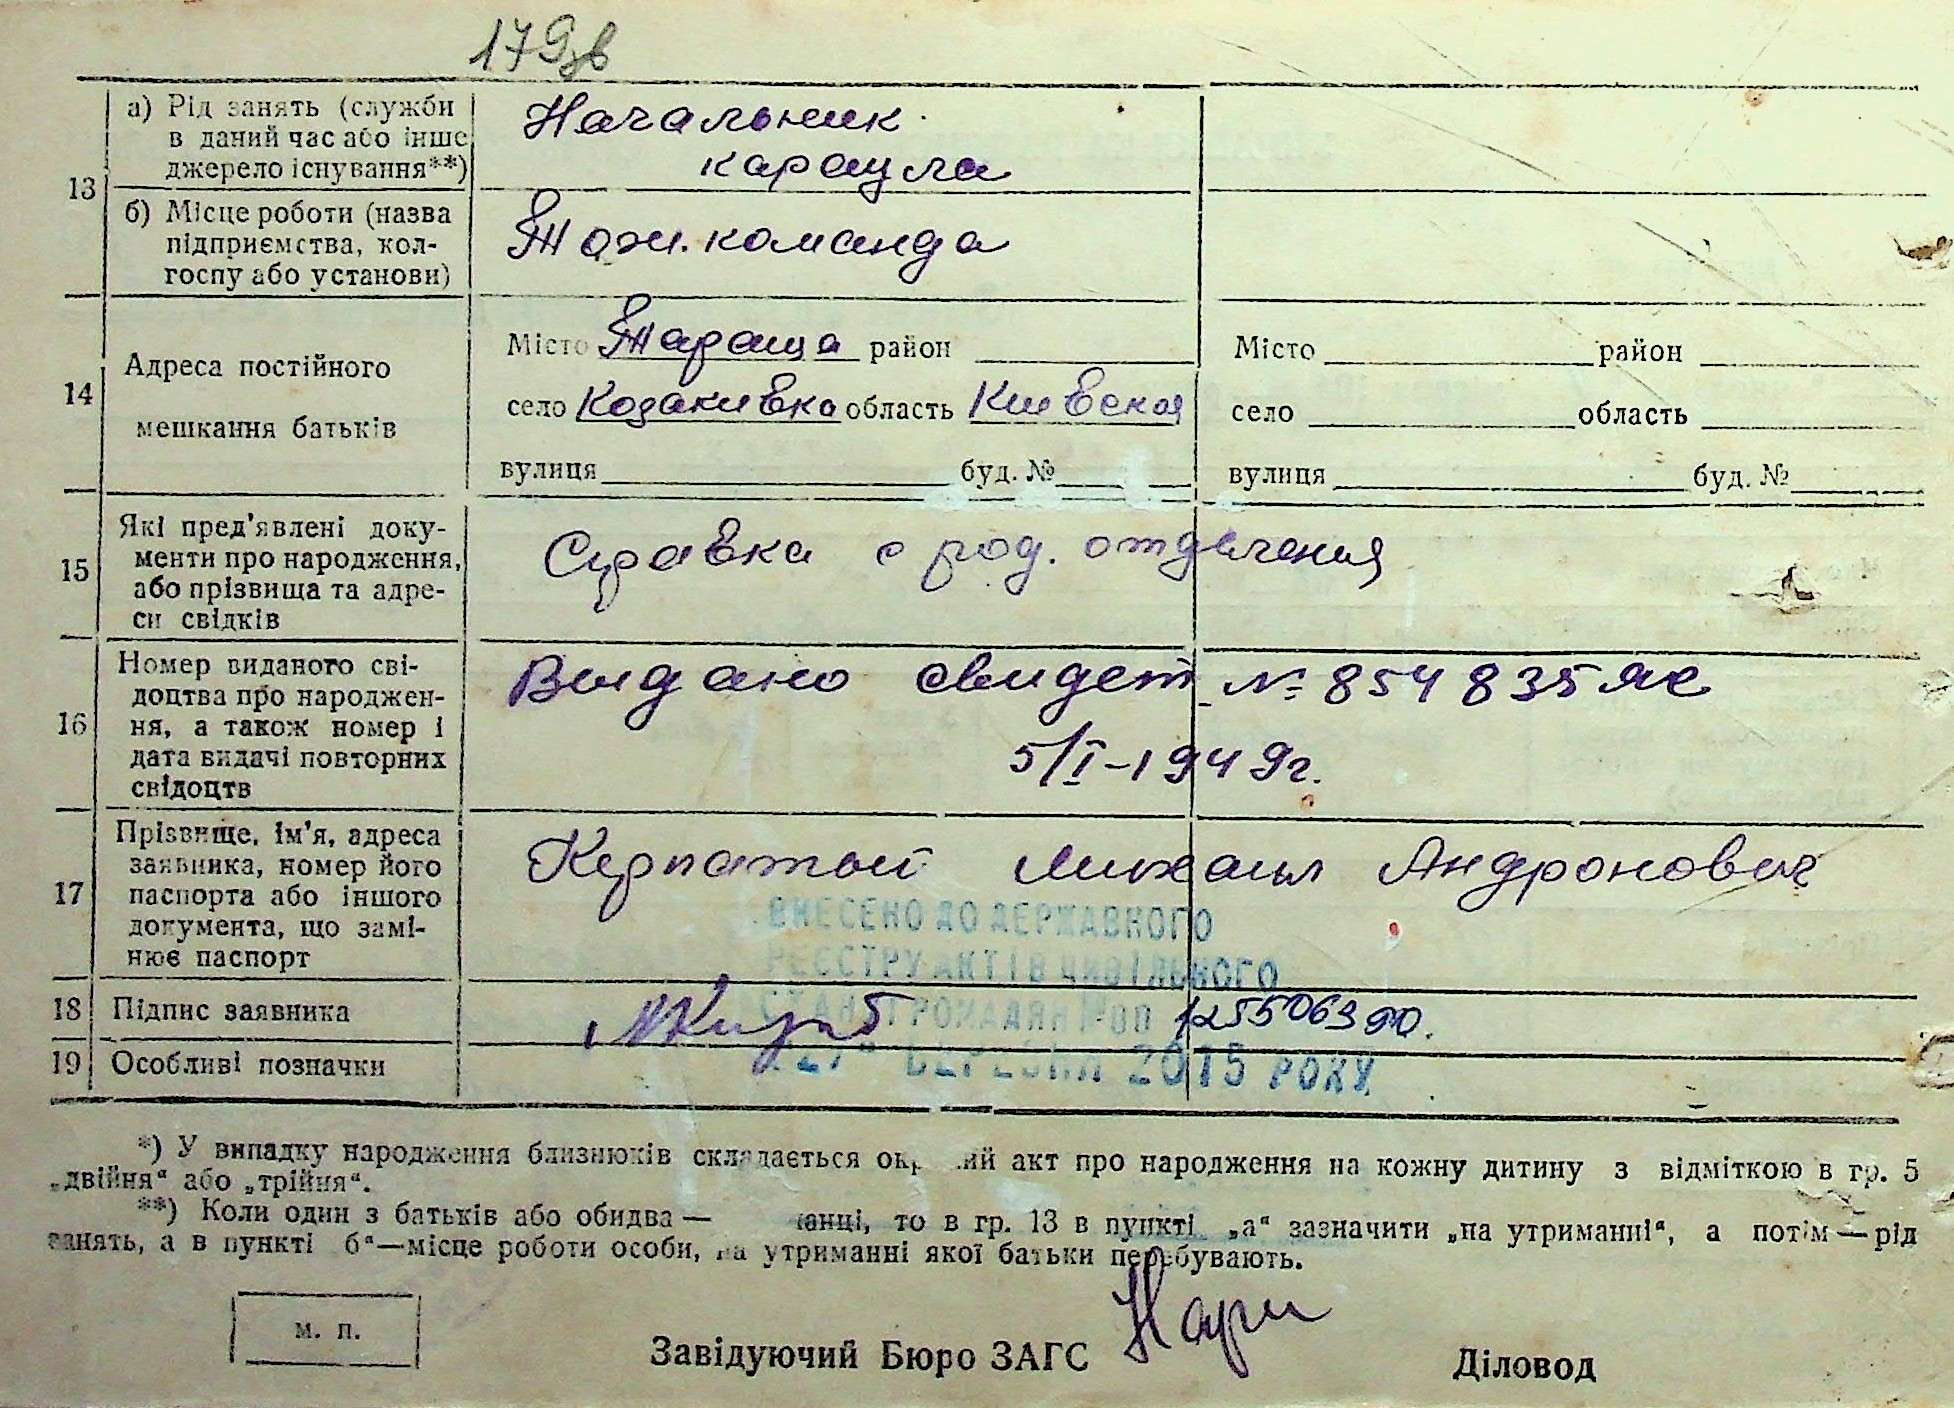 179зв
13
а) Рід занять (служби
в даний час або інше
джерело існування**)
Начальник
караула
б) Місце роботи (назва
підприємства, кол-
госпу або установи)
Пож. команда
14
Адреса постійного
мешкання батьків
Місто Тараща район
село Козакивка область Киевская
вулиця буд. №
Місто район
село область
вулиця буд. №
15
Які пред'явлені доку-
менти про народження,
або прізвища та адре-
си свідків
Справка с род. отделения
16
Номер виданого сві-
доцтва про народжен-
ня, а також номер і
дата видачі повторних
свідоцтв
Выдано свидет № 854835 ЯЕ
5/I-1949г.
17
Прізвище, ім'я, адреса
заявника, номер його
паспорта або іншого
документа, що замі-
нює паспорт
Кирпатый Михаил Андронович
ВНЕСЕНО ДО ДЕРЖАВНОГО
РЕЄСТРУ АКТІВ ЦИВІЛЬНОГО
СТАНУ ГРОМАДЯН 1255506390.
"27" БЕРЕЗНЯ 2015 РОКУ
18 Підпис заявника
19 Особливі позначки
*) У випадку народження близнюків складається окремий акт про народження на кожну дитину з відміткою в гр. 5
„двійня“ або „трійня“.
**) Коли один з батьків або обидва — то в гр. 13 в пункті „а“ зазначити „на утриманні“, а потім — рід
занять, а в пункті б“—місце роботи особи, на утриманні якої батьки перебувають.
м. п.
Завідуючий Бюро ЗАГС
Діловод